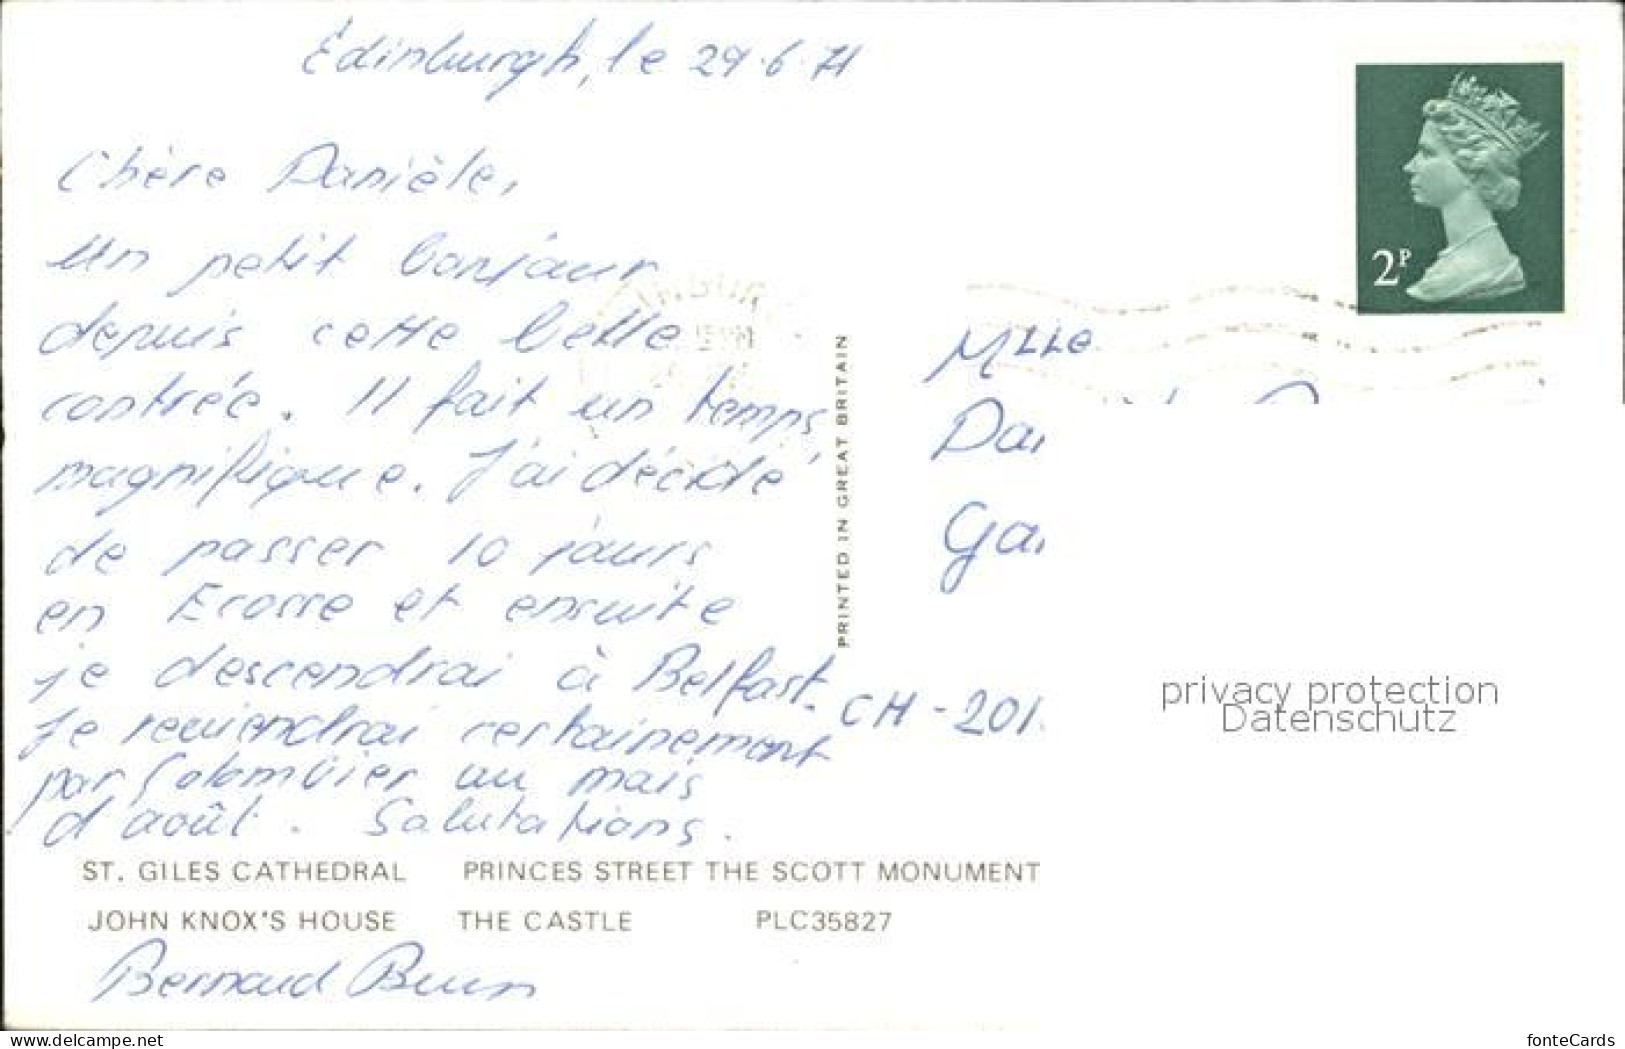 Edinburgh, le 29.6.71
Chère Danièle,
Un petit bonjour
depuis cette belle
contrée. Il fait un temps
magnifique. J'ai décidé
de passer 10 jours
en Ecosse et ensuite
je descendrai à Belfast.
Je reviendrai certainement
par Colombier au mois
d'août. Salutations.
ST. GILES CATHEDRAL PRINCES STREET THE SCOTT MONUMENT
JOHN KNOX'S HOUSE THE CASTLE PLC35827
Bernard
PRINTED IN GREAT BRITAIN
2P
Mlle
Dan
Ga
CH - 201
privacy protection
Datenschutz
www.delcampe.net
fonteCards